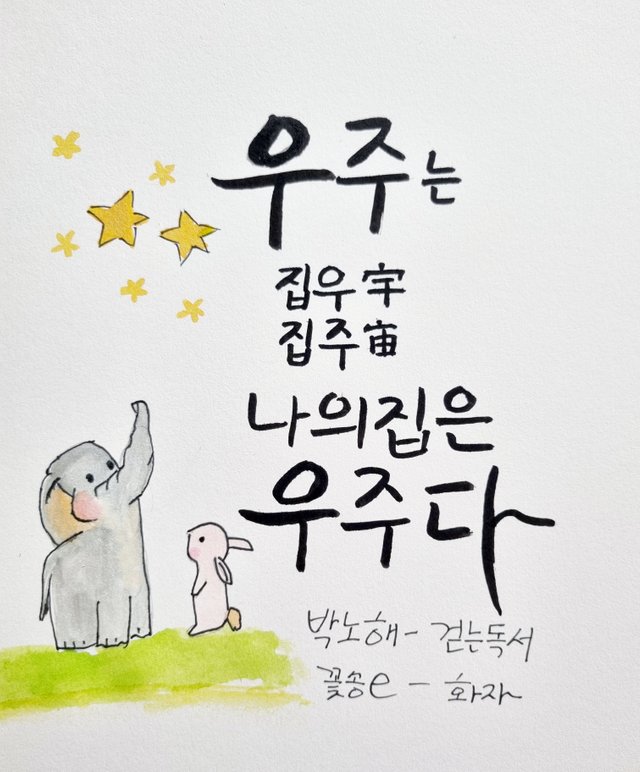 우주는
집우 宇
집주 宙
나의집은
우주다
박노해 - 걷는독서
꽃송e - 화자